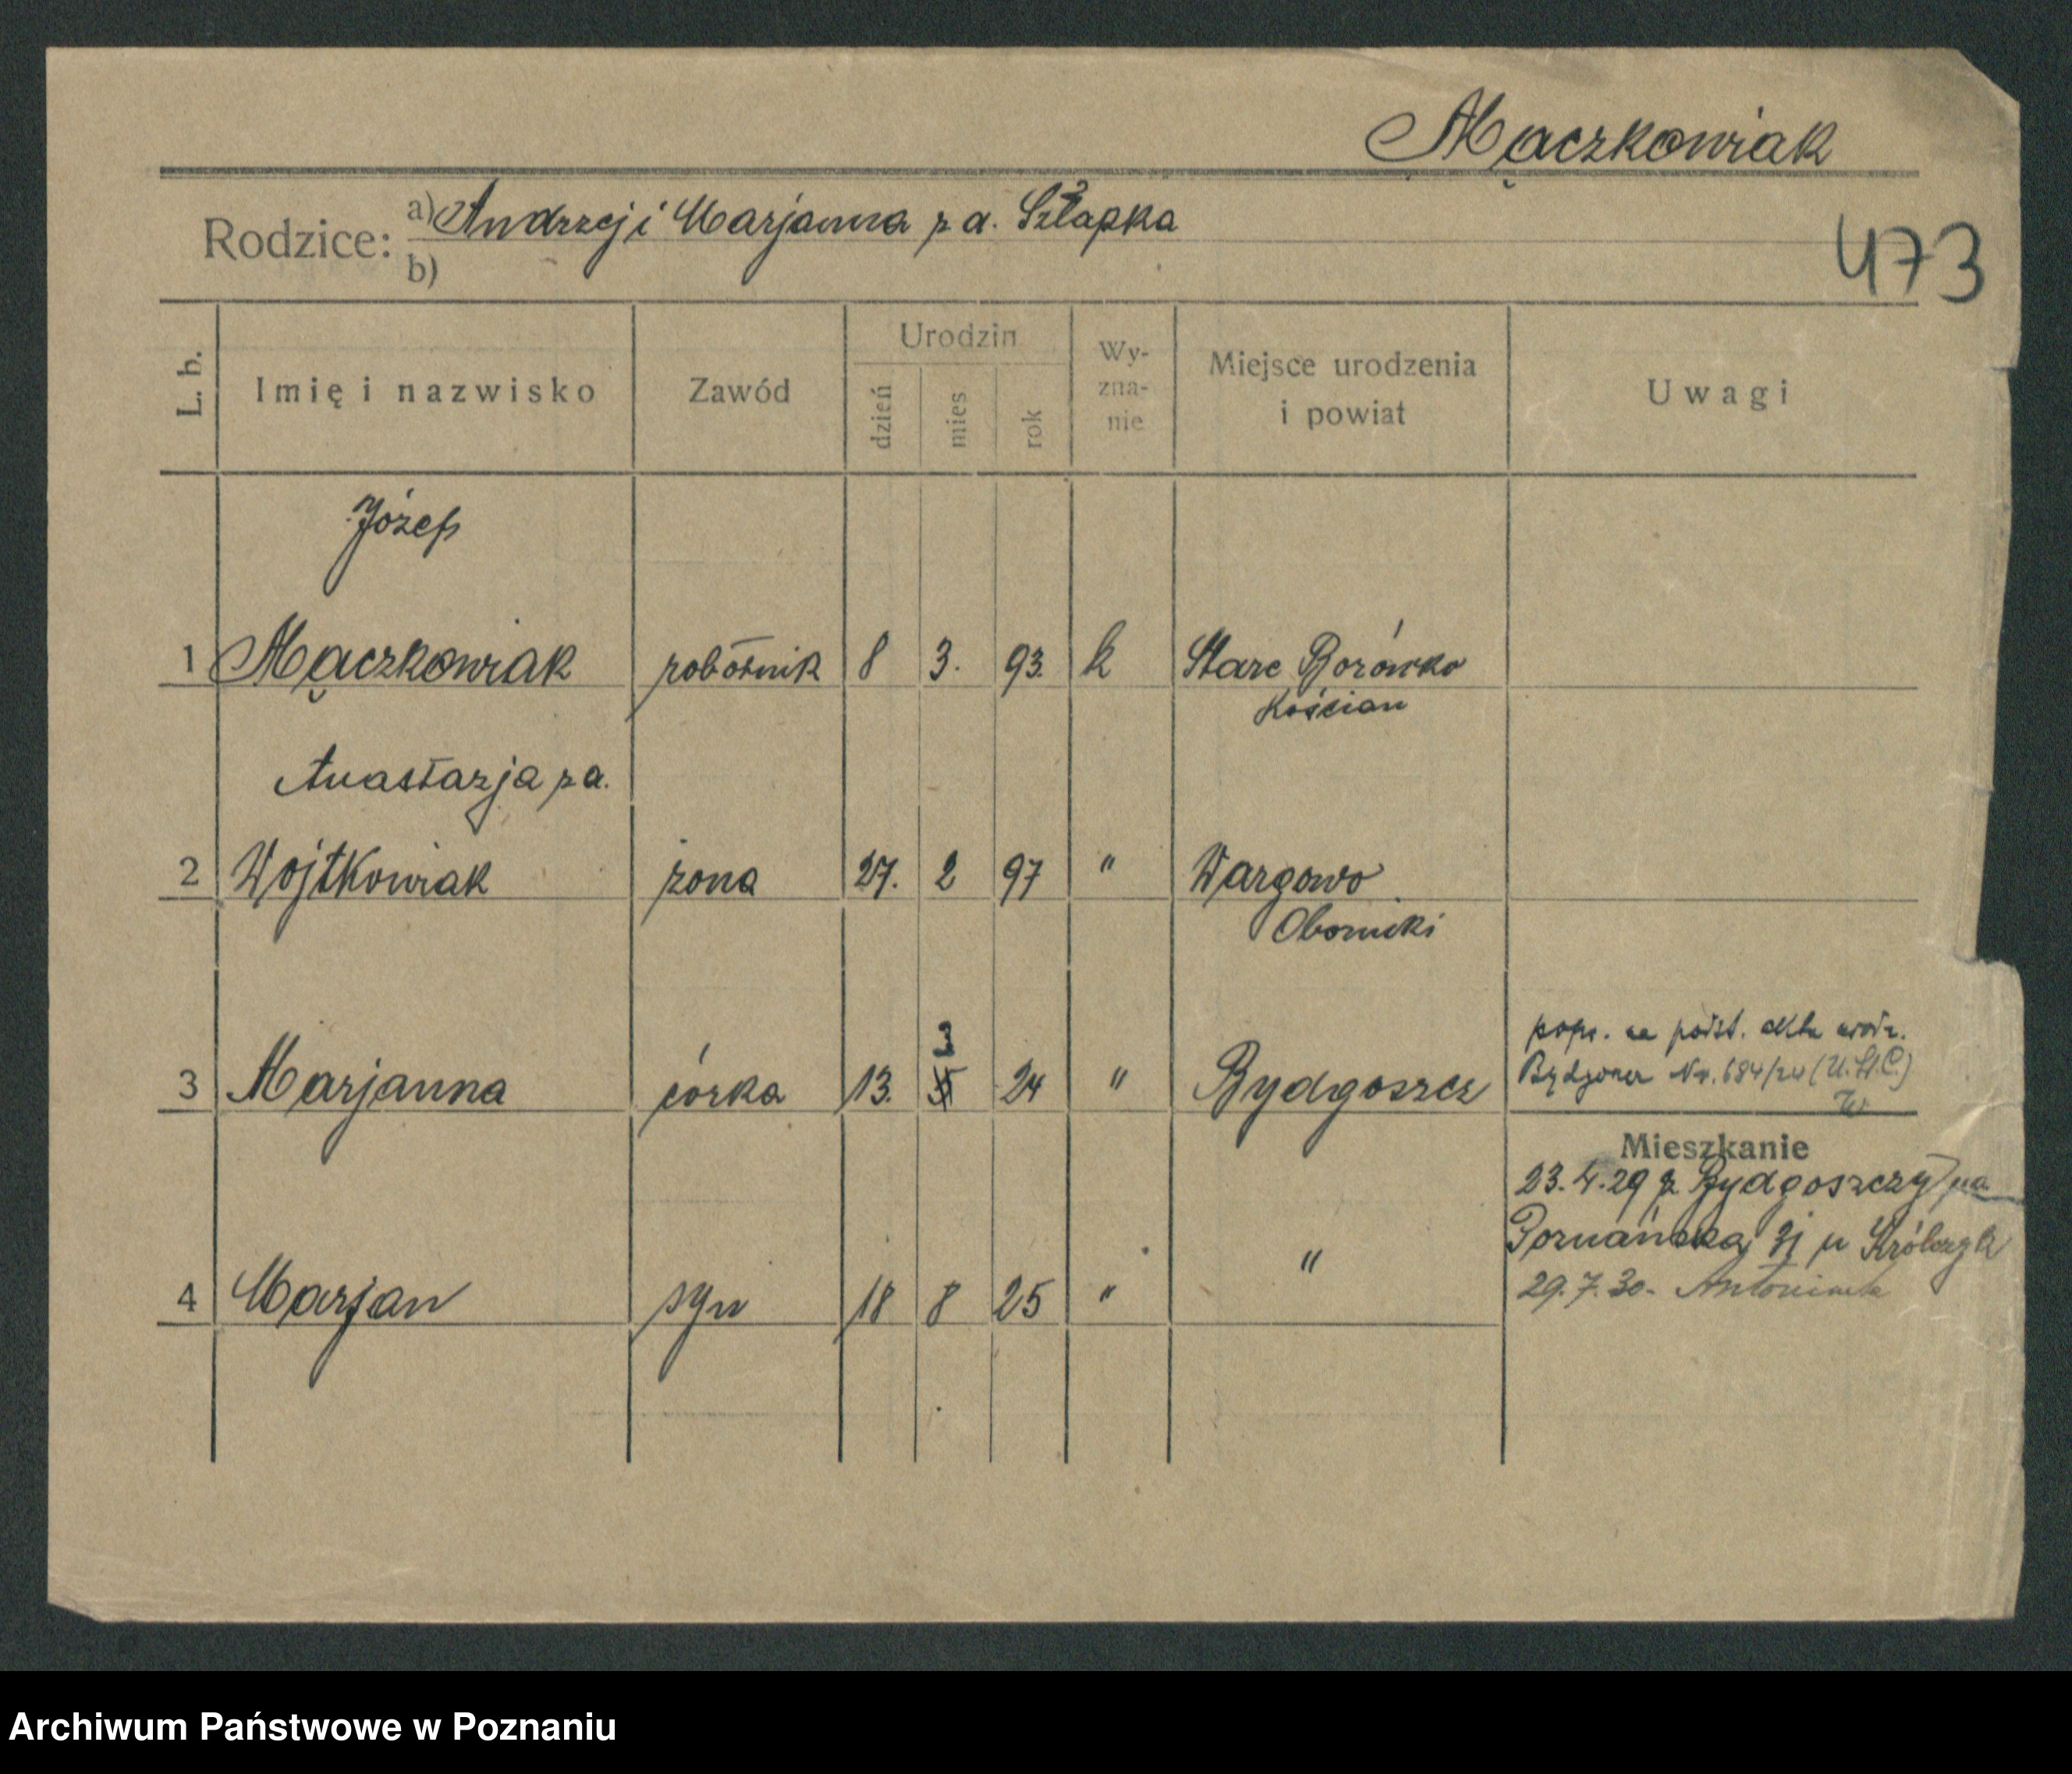 Mączkowiak
Rodzice: a) Andrzej i Marjanna z d. Szłapka
b)
473
L. b. Imię i nazwisko Zawód Urodzin dzień mies rok Wy-zna-nie Miejsce urodzenia i powiat Uwagi
Józef
1 Mączkowiak robotnik 8 3. 93. k Stare Borówko
Kościan
Anastazja z d.
2 Wojtkowiak żona 27. 2 97 " Wargowo
Oborniki
3
popr. na podst. aktu urodz.
3 Marjanna córka 13. 5 24 " Bydgoszcz Bydgoszcz Nr. 684/24 (U.St.C.)
Mieszkanie
23.4.29 z Bydgoszczy na
Poznańska 31 u Królczyk
4 Marjan syn 18 8 25 " " 29.7.30. Antoninek
Archiwum Państwowe w Poznaniu